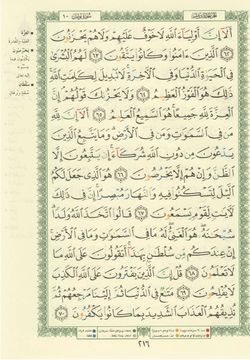 أَلَآ إِنَّ أَوْلِيَآءَ ٱللَّهِ لَا خَوْفٌ عَلَيْهِمْ وَلَا هُمْ يَحْزَنُونَ
٦٢ ٱلَّذِينَ ءَامَنُوا۟ وَكَانُوا۟ يَتَّقُونَ ٦٣ لَهُمُ ٱلْبُشْرَىٰ
فِى ٱلْحَيَوٰةِ ٱلدُّنْيَا وَفِى ٱلْـَٔاخِرَةِ لَا تَبْدِيلَ لِكَلِمَـٰتِ ٱللَّهِ
ذَٰلِكَ هُوَ ٱلْفَوْزُ ٱلْعَظِيمُ ٦٤ وَلَا يَحْزُنكَ قَوْلُهُمْ إِنَّ
ٱلْعِزَّةَ لِلَّهِ جَمِيعًا هُوَ ٱلسَّمِيعُ ٱلْعَلِيمُ ٦٥ أَلَآ إِنَّ لِلَّهِ
مَن فِى ٱلسَّمَـٰوَٰتِ وَمَن فِى ٱلْأَرْضِ وَمَا يَتَّبِعُ ٱلَّذِينَ
يَدْعُونَ مِن دُونِ ٱللَّهِ شُرَكَآءَ إِن يَتَّبِعُونَ إِلَّا
ٱلظَّنَّ وَإِنْ هُمْ إِلَّا يَخْرُصُونَ ٦٦ هُوَ ٱلَّذِى جَعَلَ لَكُمُ
ٱلَّيْلَ لِتَسْكُنُوا۟ فِيهِ وَٱلنَّهَارَ مُبْصِرًا إِنَّ فِى ذَٰلِكَ
لَـَٔايَـٰتٍ لِّقَوْمٍ يَسْمَعُونَ ٦٧ قَالُوا۟ ٱتَّخَذَ ٱللَّهُ وَلَدًا
سُبْحَـٰنَهُۥ هُوَ ٱلْغَنِىُّ لَهُۥ مَا فِى ٱلسَّمَـٰوَٰتِ وَمَا فِى ٱلْأَرْضِ
إِنْ عِندَكُم مِّن سُلْطَـٰنٍۭ بِهَـٰذَآ أَتَقُولُونَ عَلَى ٱللَّهِ مَا
لَا تَعْلَمُونَ ٦٨ قُلْ إِنَّ ٱلَّذِينَ يَفْتَرُونَ عَلَى ٱللَّهِ ٱلْكَذِبَ
لَا يُفْلِحُونَ ٦٩ مَتَـٰعٌ فِى ٱلدُّنْيَا ثُمَّ إِلَيْنَا مَرْجِعُهُمْ ثُمَّ
نُذِيقُهُمُ ٱلْعَذَابَ ٱلشَّدِيدَ بِمَا كَانُوا۟ يَكْفُرُونَ ٧٠
٢١٦